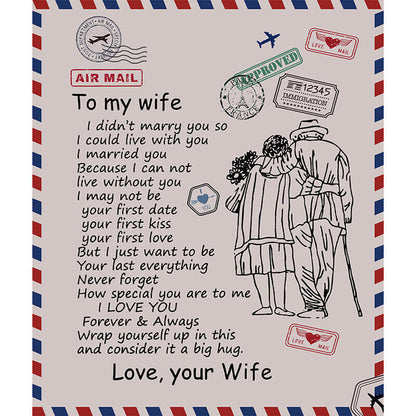 AIR MAIL
APPROVED
LOVE MAIL
12345
IMMIGRATION
PARIS
To my wife
I didn't marry you so
I could live with you
I married you
Because I can not
live without you
I may not be
your first date
your first kiss
your first love
But I just want to be
Your last everything
Never forget
How special you are to me
I LOVE YOU
Forever & Always
Wrap yourself up in this
and consider it a big hug.
Love, your Wife
LOVE MAIL